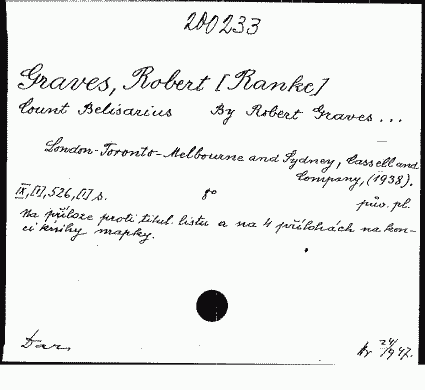 200233
Graves, Robert [Ranke]
Count Belisarius By Robert Graves ...
London-Toronto-Melbourne and Sydney, Cassell and
Company, (1938).
IX,[I],526,[I] s. 8° pův. pl.
Na příloze proti titul. listu a na 4 přílohách na kon-
ci knihy mapky.
Dar. 24/1947.